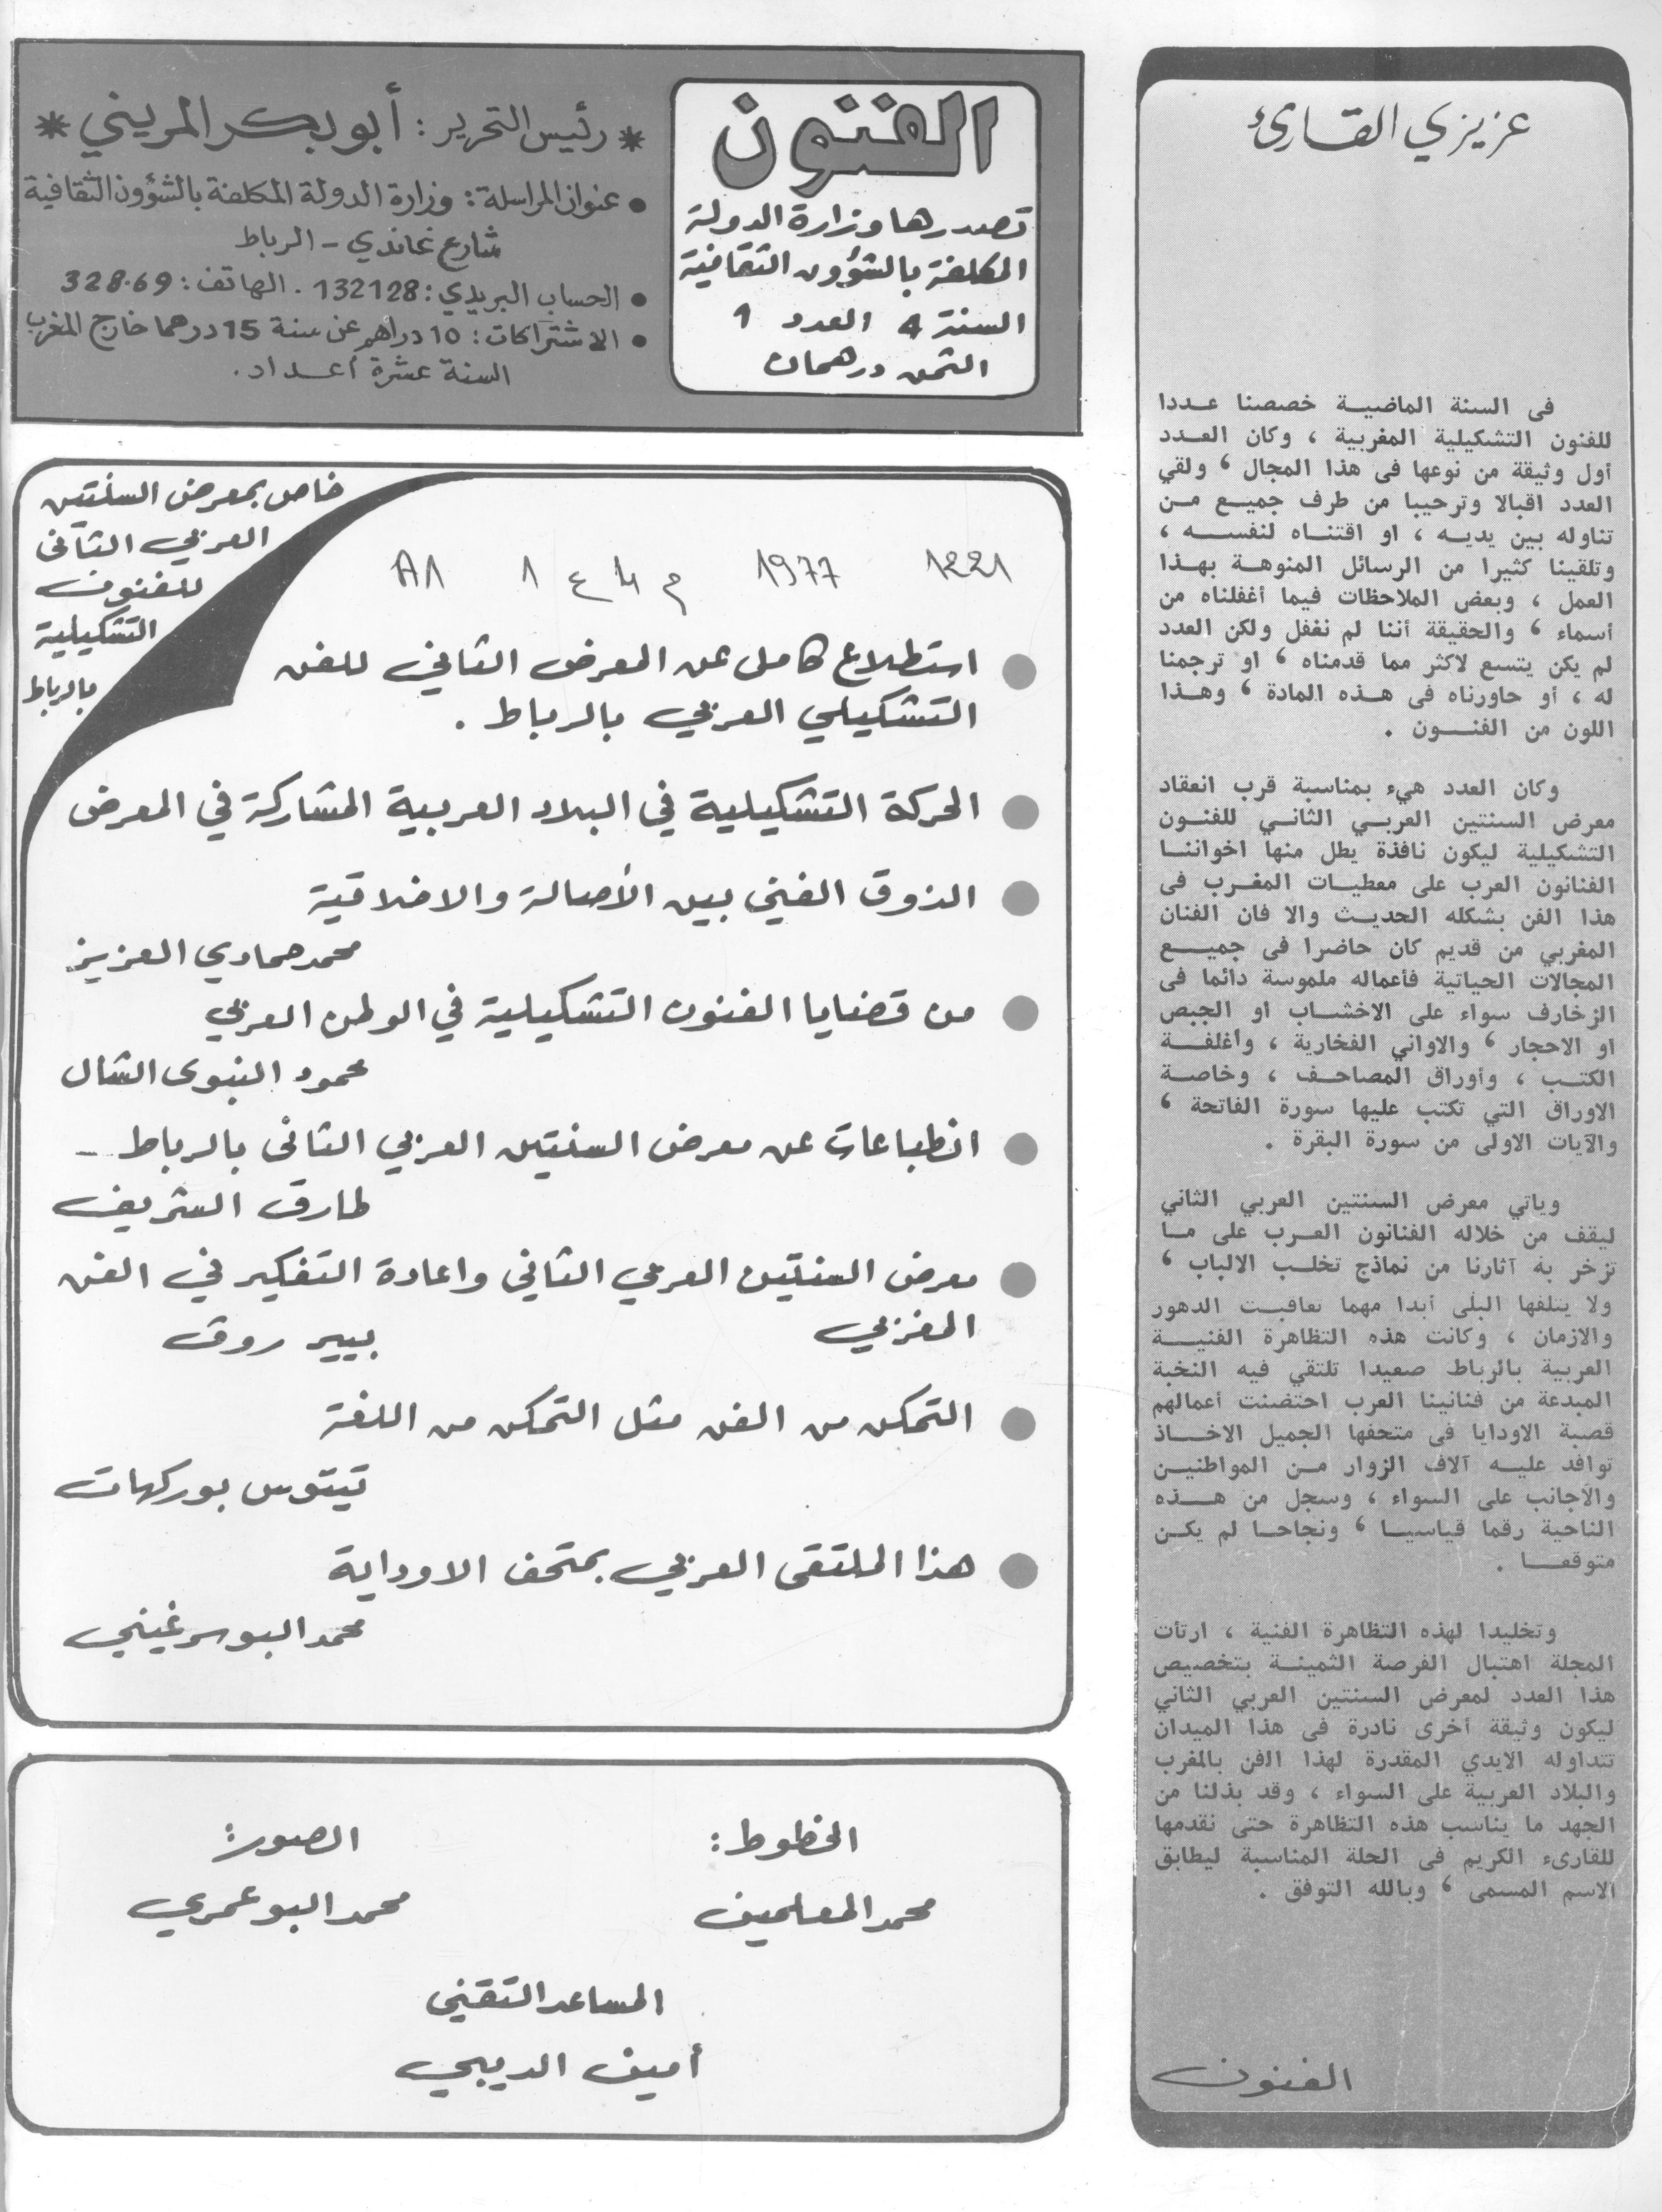 عزيزي القارئ
فى السنة الماضيـة خصصنا عـددا
للفنون التشكيلية المغربية ، وكان العـدد
أول وثيقة من نوعها فى هذا المجال ، ولقي
العدد اقبالا وترحيبا من طرف جميـع مـن
تناوله بين يديـه ، او اقتنـاه لنفسـه ،
وتلقينا كثيرا من الرسائل المنوهـة بهـذا
العمل ، وبعض الملاحظات فيما أغفلناه من
أسماء ، والحقيقة أننا لم نغفل ولكن العدد
لم يكن يتسع لاكثر مما قدمناه ، او ترجمنا
له ، أو حاورناه فى هـذه المادة ، وهـذا
اللون من الفنــون .
وكان العدد هيء بمناسبة قرب انعقاد
معرض السنتين العربـي الثانـي للفنـون
التشكيلية ليكون نافذة يطل منها اخواننـا
الفنانون العرب على معطيـات المغـرب فى
هذا الفن بشكله الحديـث والا فان الفنان
المغربي من قديم كان حاضرا فى جميــع
المجالات الحياتية فأعماله ملموسة دائما فى
الزخارف سواء على الاخشـاب او الجبص
او الاحجار ، والاواني الفخارية ، وأغلفـة
الكتـب ، وأوراق المصاحـف ، وخاصـة
الاوراق التي تكتب عليها سورة الفاتحة ،
والآيات الاولى من سورة البقرة .
وياتي معرض السنتين العربي الثاني
ليقف من خلاله الفنانون العـرب على مـا
تزخر به آثارنا من نماذج تخلـب الالباب ،
ولا يتلفها البلى أبدا مهما تعاقبـت الدهور
والازمان ، وكانت هذه التظاهرة الفنيـة
العربية بالرباط صعيدا تلتقي فيه النخبة
المبدعة من فنانينا العرب احتضنت أعمالهم
قصبة الاودايا فى متحفها الجميل الاخـاذ
توافد عليـه آلاف الزوار مـن المواطنيـن
والاجانب على السواء ، وسجل من هـذه
الناحية رقما قياسيـا ، ونجاحـا لم يكـن
متوقعـا .
وتخليدا لهذه التظاهرة الفنية ، ارتأت
المجلة اهتبال الفرصة الثمينـة بتخصيص
هذا العدد لمعرض السنتين العربي الثاني
ليكون وثيقة أخرى نادرة فى هذا الميدان
تتداوله الايدي المقدرة لهذا الفن بالمغرب
والبلاد العربية على السواء ، وقد بذلنا من
الجهد ما يناسب هذه التظاهرة حتى نقدمها
للقارىء الكريم فى الحلة المناسبة ليطابق
الاسم المسمى ، وبالله التوفق .
الفنون
الفنون
تصدرها وزارة الدولة
المكلفة بالشؤون الثقافية
السنة 4 العدد 1
الثمن درهمان
* رئيس التحرير : أبو بكر المريني *
• عنوان المراسلة : وزارة الدولة المكلفة بالشؤون الثقافية
شارع غاندي - الرباط
• الحساب البريدي : 132128 . الهاتف : 328.69
• الاشتراكات : 10 دراهم عن سنة 15 درهما خارج المغرب
السنة عشرة أعداد .
خاص بمعرض السنتين
العربي الثاني
للفنون
التشكيلية
بالرباط
1221 1977 م 4 ع 1 A1
استطلاع كامل عن المعرض الثاني للفن
التشكيلي العربي بالرباط .
الحركة التشكيلية في البلاد العربية المشاركة في المعرض
الذوق الفني بين الأصالة والاخلاقية
محمد حمادي العزيز
من قضايا الفنون التشكيلية في الوطن العربي
محمود النبوى الشال
انطباعات عن معرض السنتين العربي الثانى بالرباط -
طارق الشريف
معرض السنتين العربي الثاني واعادة التفكير في الفن
المغربي
بيير روق
التمكن من الفن مثل التمكن من اللغة
تيتوس بوركهات
هذا الملتقى العربي بمتحف الاوداية
محمد البوسرغيني
الخطوط :
محمد المعلمين
الصور :
محمد البوعمري
المساعد التقني
أمين الديبي